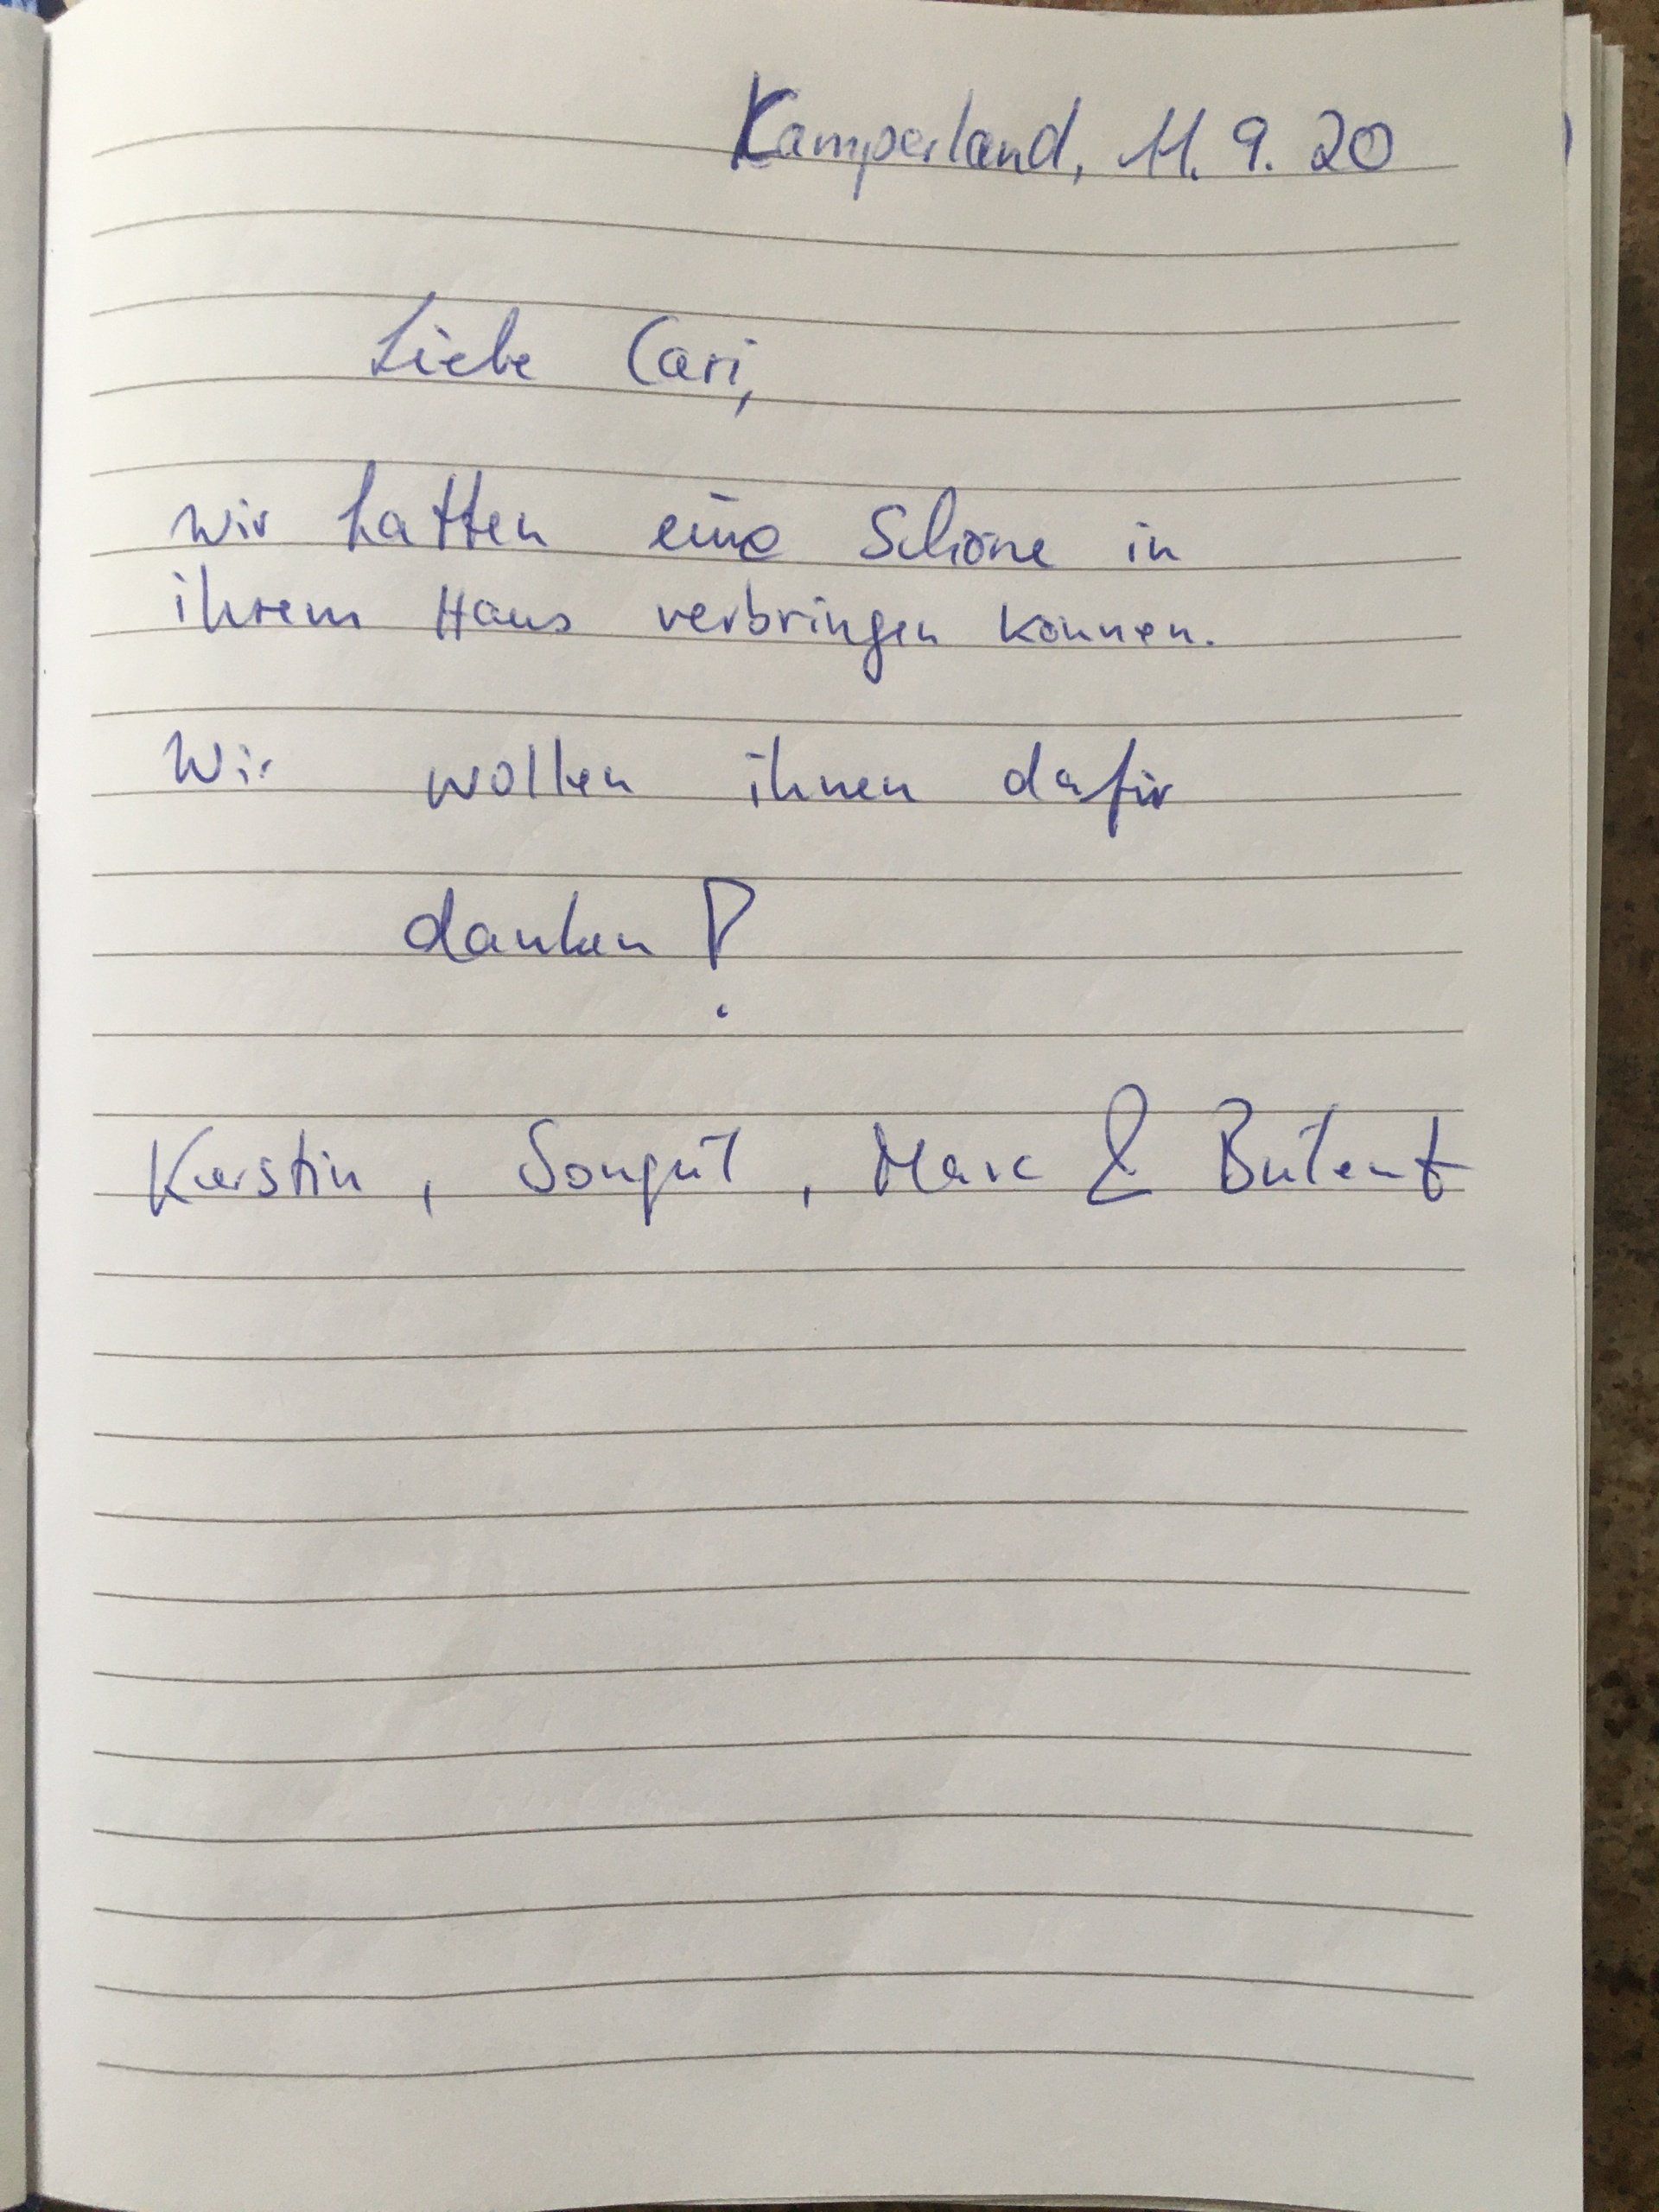 Kamperland, 11. 9. 20
Liebe Cari,
wir hatten eine schöne in
ihrem Haus verbringen können.
Wir wollen ihnen dafür
danken!
Kerstin, Songül, Marc & Bülent